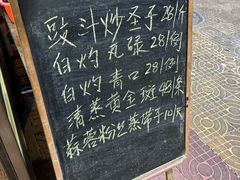 豉汁炒圣子28/斤
白灼丸碌28/例
白灼青口28/例
清蒸黄金斑48/条
蒜蓉粉丝蒸带子10/只